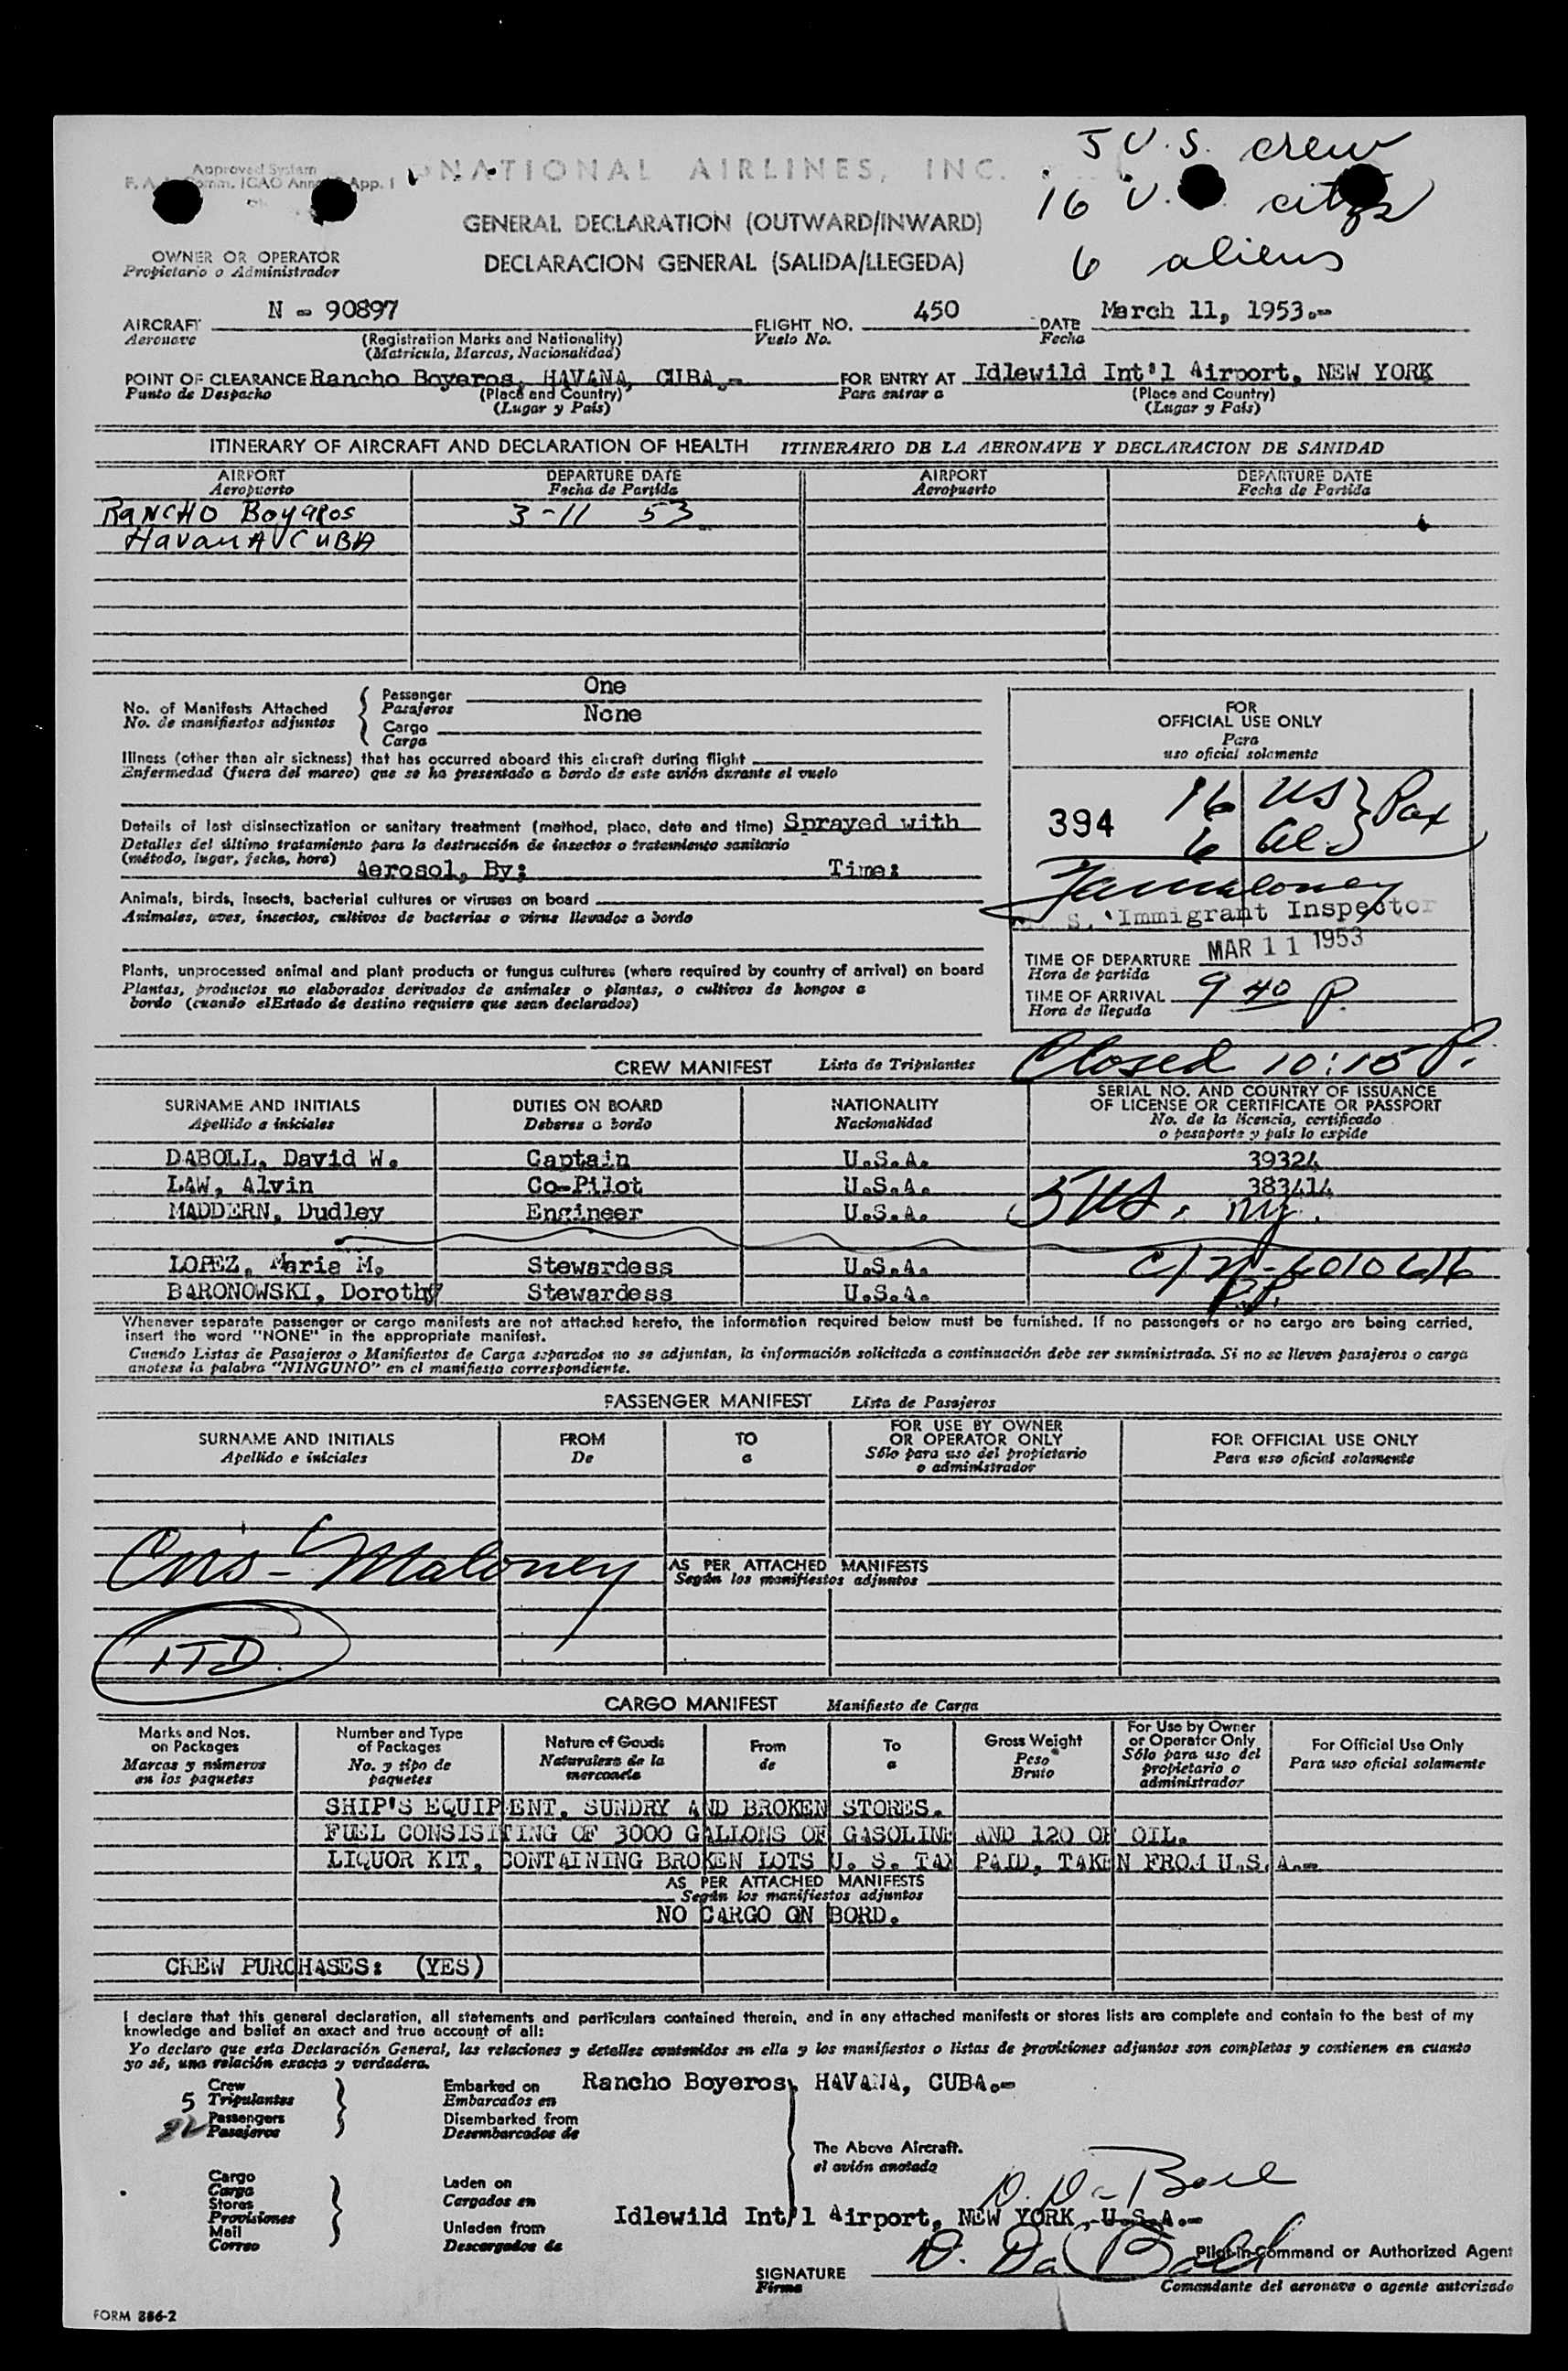 Approved System
NATIONAL AIRLINES, INC.
5 U.S. crew
16 U. citzs
6 aliens
GENERAL DECLARATION (OUTWARD/INWARD)
DECLARACION GENERAL (SALIDA/LLEGEDA)
OWNER OR OPERATOR
Propietario o Administrador
AIRCRAFT N - 90897 FLIGHT NO. 450 DATE March 11, 1953.-
Aeronave (Registration Marks and Nationality) Vuelo No. Fecha
(Matricula, Marcas, Nacionalidad)
POINT OF CLEARANCE Rancho Boyeros, HAVANA, CUBA.- FOR ENTRY AT Idlewild Int'l Airport, NEW YORK
Punto de Despacho (Place and Country) Para entrar a (Place and Country)
(Lugar y País) (Lugar y País)
ITINERARY OF AIRCRAFT AND DECLARATION OF HEALTH ITINERARIO DE LA AERONAVE Y DECLARACION DE SANIDAD
AIRPORT DEPARTURE DATE AIRPORT DEPARTURE DATE
Aeropuerto Fecha de Partida Aeropuerto Fecha de Partida
RANCHO Boyeros 3-11 53
Havana CUBA
No. of Manifests Attached Passenger One
No. de manifiestos adjuntos Pasajeros
Cargo None
Carga
Illness (other than air sickness) that has occurred aboard this aircraft during flight
Enfermedad (fuera del mareo) que se ha presentado a bordo de este avión durante el vuelo
Details of last disinsectization or sanitary treatment (method, place, date and time) Sprayed with
Detalles del último tratamiento para la destrucción de insectos o tratamiento sanitario
(método, lugar, fecha, hora) Aerosol, By; Time:
Animals, birds, insects, bacterial cultures or viruses on board
Animales, aves, insectos, cultivos de bacterias o virus llevados a bordo
Plants, unprocessed animal and plant products or fungus cultures (where required by country of arrival) on board
Plantas, productos no elaborados derivados de animales o plantas, o cultivos de hongos a
bordo (cuando elEstado de destino requiere que sean declarados)
FOR
OFFICIAL USE ONLY
Para
uso oficial solamente
394 16 US Pax
6 Al.
Maloney
S. Immigrant Inspector
TIME OF DEPARTURE MAR 11 1953
Hora de partida
TIME OF ARRIVAL 9 40 P.
Hora de llegada
Closed 10:15 P.
CREW MANIFEST Lista de Tripulantes
SURNAME AND INITIALS DUTIES ON BOARD NATIONALITY SERIAL NO. AND COUNTRY OF ISSUANCE
OF LICENSE OR CERTIFICATE OR PASSPORT
Apellido e iniciales Deberes a bordo Nacionalidad No. de la licencia, certificado
o pasaporte y país lo expide
DABOLL, David W. Captain U.S.A. 39324
LAW, Alvin Co-Pilot U.S.A. 383414
MADDERN, Dudley Engineer U.S.A. 5 US. ny.
LOPEZ, Maria M. Stewardess U.S.A.
BARONOWSKI, Dorothy Stewardess U.S.A.
Whenever separate passenger or cargo manifests are not attached hereto, the information required below must be furnished. If no passengers or no cargo are being carried,
insert the word "NONE" in the appropriate manifest.
Cuando Listas de Pasajeros o Manifiestos de Carga separados no se adjuntan, la información solicitada a continuación debe ser suministrada. Si no se lleven pasajeros o carga
anotese la palabra "NINGUNO" en el manifiesto correspondiente.
PASSENGER MANIFEST Lista de Pasajeros
SURNAME AND INITIALS FROM TO FOR USE BY OWNER
OR OPERATOR ONLY FOR OFFICIAL USE ONLY
Apellido e iniciales De a Sólo para uso del propietario
o administrador Para uso oficial solamente
Maloney
AS PER ATTACHED MANIFESTS
Según los manifiestos adjuntos
ITD.
CARGO MANIFEST Manifiesto de Carga
Marks and Nos.
on Packages
Marcas y números
en los paquetes
Number and Type
of Packages
No. y tipo de
paquetes
Nature of Goods
Naturaleza de la
mercancia
From
de
To
a
Gross Weight
Peso
Bruto
For Use by Owner
or Operator Only
Sólo para uso del
propietario o
administrador
For Official Use Only
Para uso oficial solamente
SHIP'S EQUIPENT, SUNDRY AND BROKEN STORES.
FUEL CONSISITING OF 3000 GALLONS OF GASOLINE AND 120 OF OIL.
LIQUOR KIT, CONTAINING BROKEN LOTS U. S. TAX PAID, TAKEN FROM U.S.A.-
AS PER ATTACHED MANIFESTS
Según los manifiestos adjuntos
NO CARGO ON BORD.
CREW PURCHASES: (YES)
I declare that this general declaration, all statements and particulars contained therein, and in any attached manifests or stores lists are complete and contain to the best of my
knowledge and belief an exact and true account of all:
Yo declaro que esta Declaración General, las relaciones y detalles contenidos en ella y los manifiestos o listas de provisiones adjuntos son completos y contienen en cuanto
yo sé, una relación exacta y verdadera.
5 Crew
Tripulantes
Passengers
Pasajeros
Embarked on Rancho Boyeros, HAVANA, CUBA.-
Embarcados en
Disembarked from
Desembarcados de
The Above Aircraft.
el avión anotado
Cargo
Carga
Stores
Provisiones
Mail
Correo
Laden on
Cargados en
Unladen from
Descargados de
Idlewild Int'l Airport, NEW YORK, U.S.A.-
SIGNATURE
Firma
Pilot-in-Command or Authorized Agent
Comandante del aeronave o agente autorizado
FORM 886-2